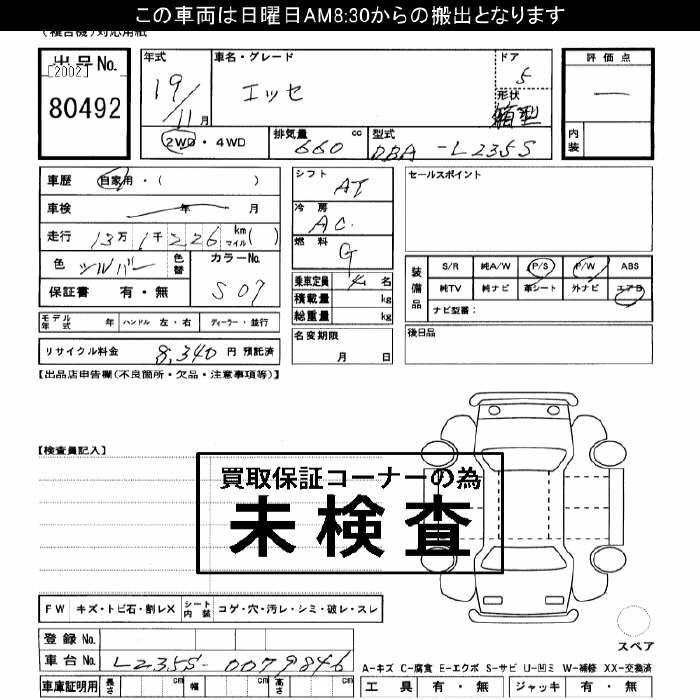 この車両は日曜日AM8:30からの搬出となります
(複合機)対応用紙
出品No.
[2002]
80492
年式 19/11月
車名・グレード エッセ
ドア 5
形状 箱型
評価点 —
内装
2WD・4WD
排気量 660 cc
型式 DBA-L235S
車歴 自家用・( )
車検 年 月
走行 13万1千226 km マイル( )
色 シルバー
色替
カラーNo. S07
保証書 有・無
シフト AT
冷房 AC.
燃料 G
乗車定員 4名
積載量 kg
総重量 kg
名変期限 月 日
セールスポイント
装備品 S/R 純A/W P/S P/W ABS
純TV 純ナビ 革シート 外ナビ エアB
ナビ型番:
後日品
モデル年式 年 ハンドル 左・右 ディーラー・並行
リサイクル料金 8,340 円 預託済
【出品店申告欄(不良箇所・欠品・注意事項等)】
【検査員記入】
買取保証コーナーの為
未検査
FW キズ・トビ石・割レX シート内装 コゲ・穴・汚レ・シミ・破レ・スレ
スペア
登録No.
車台No. L235S-0079846
A-キズ C-腐食 E-エクボ S-サビ U-凹ミ W-補修 XX-交換済
車庫証明用 長さ cm 幅 cm 高さ cm
工具 有・無 ジャッキ 有・無